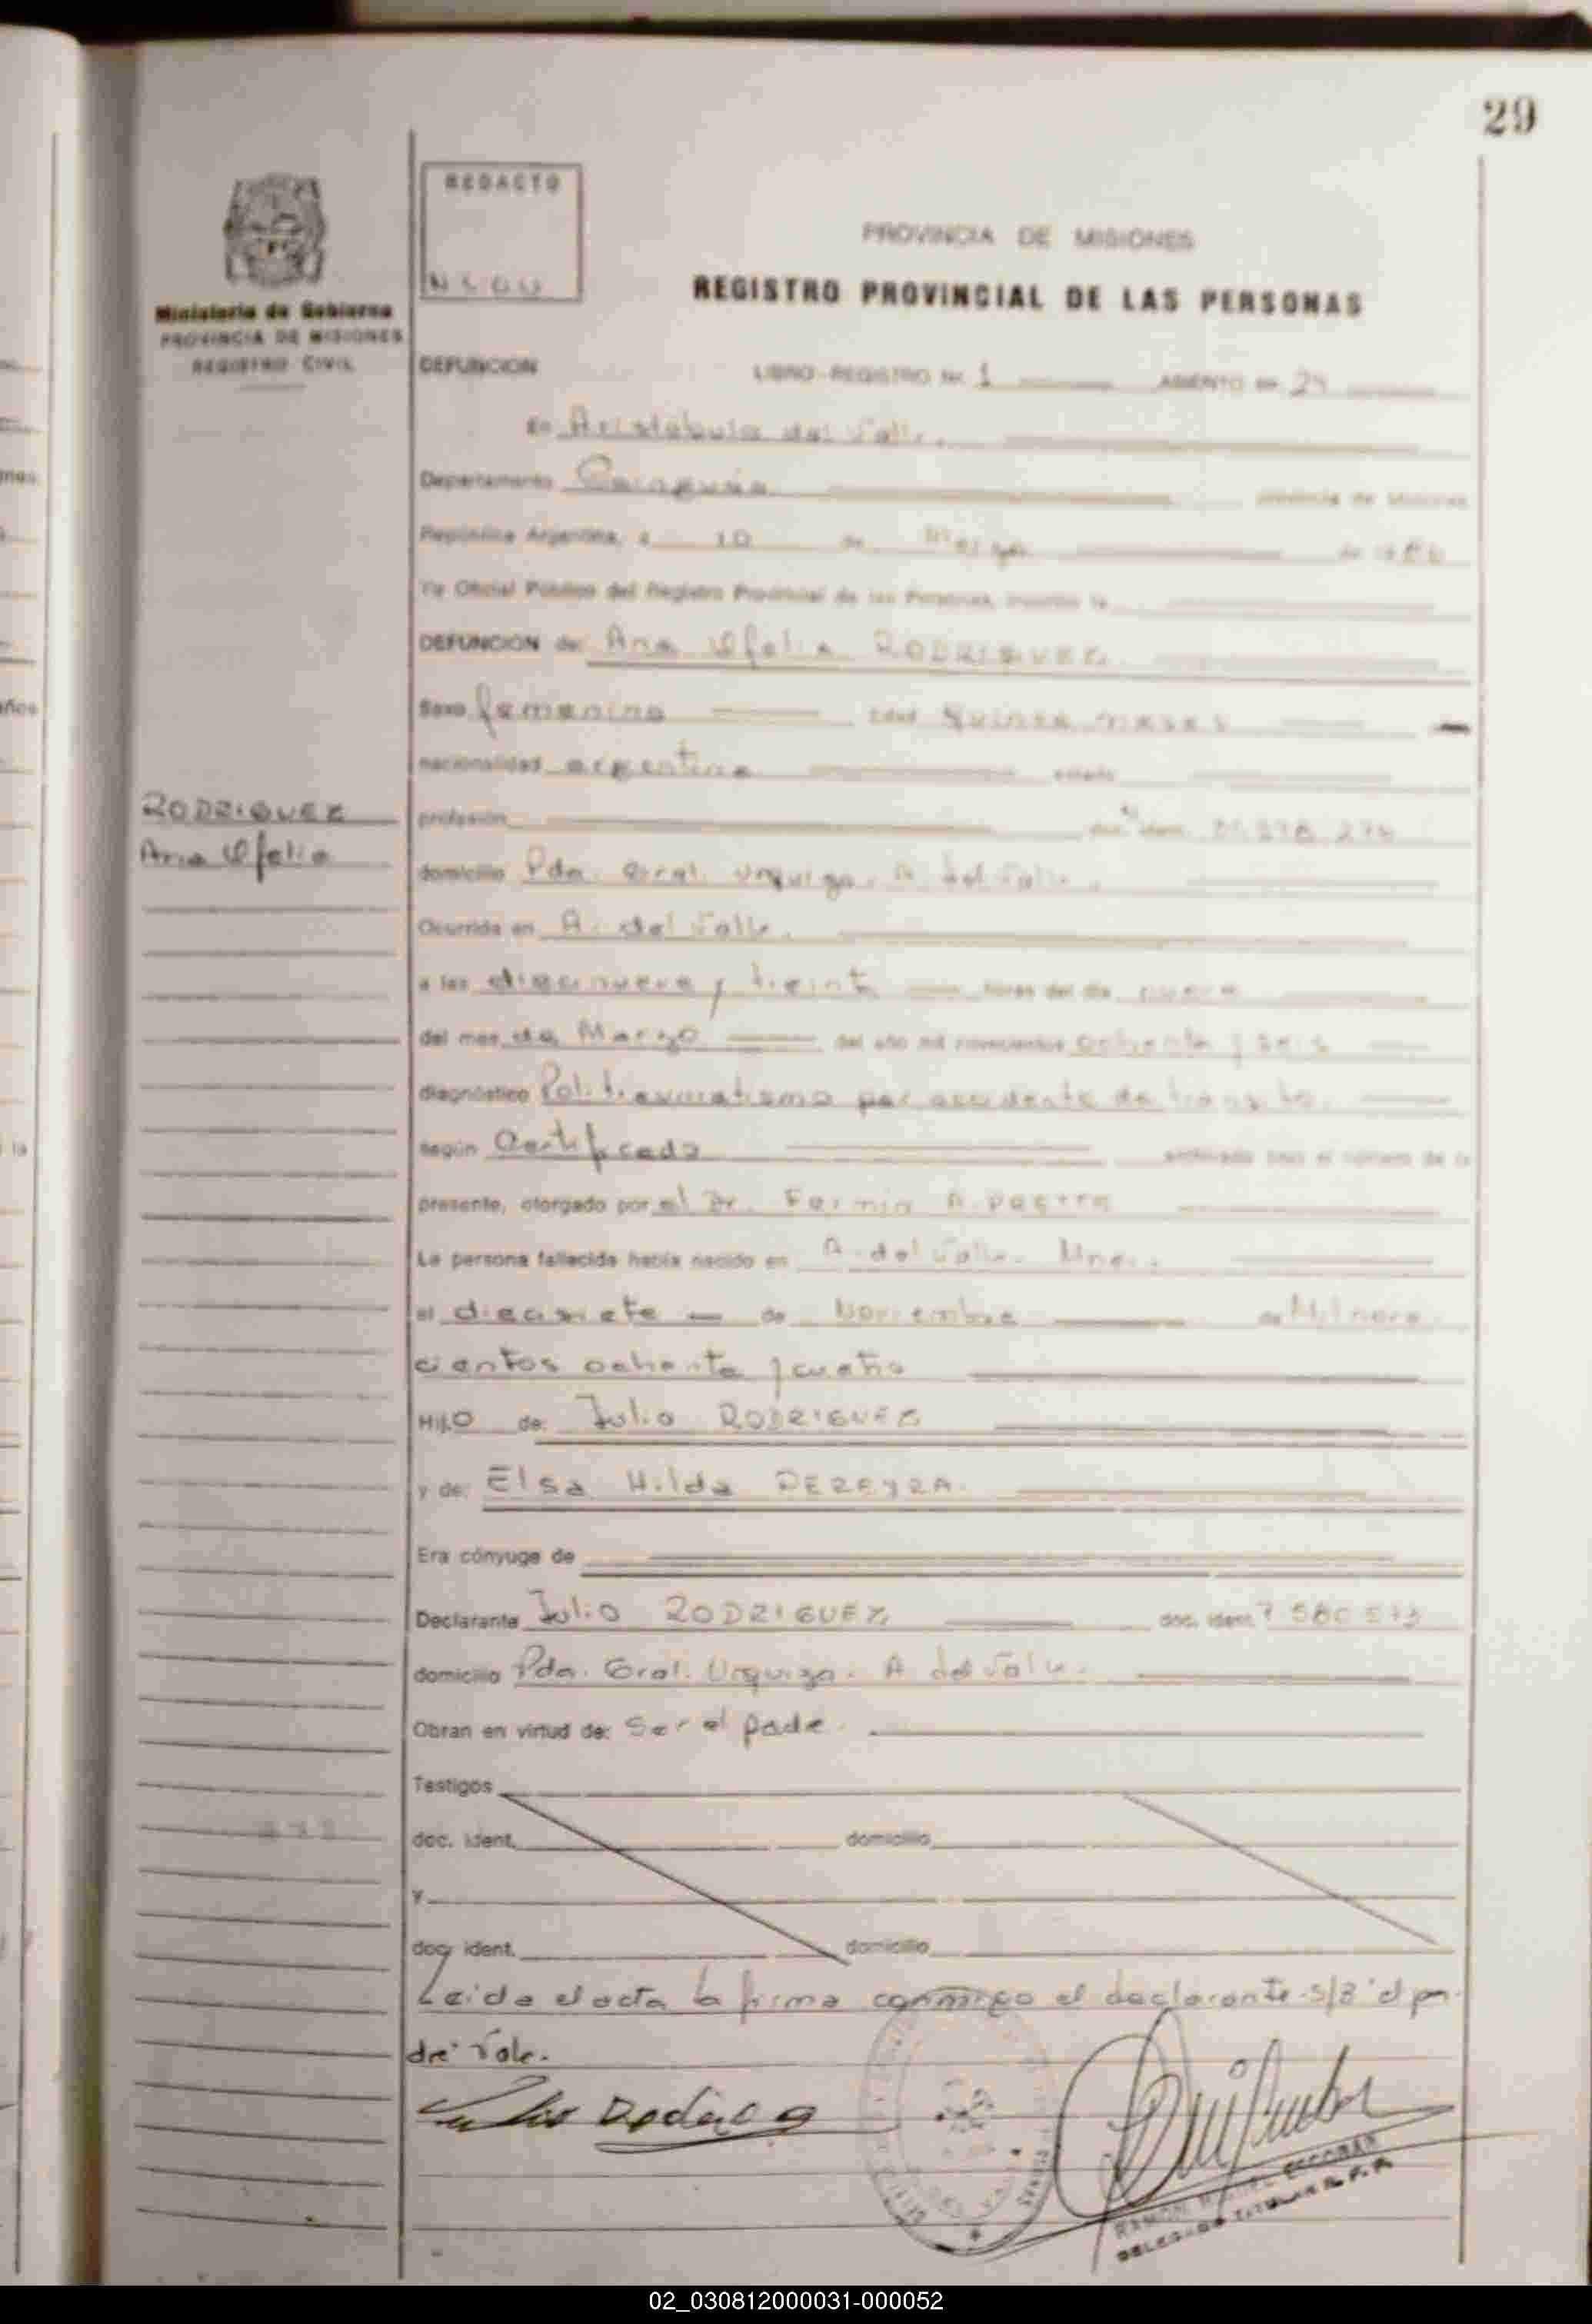 29
REDACTO
PROVINCIA DE MISIONES
REGISTRO PROVINCIAL DE LAS PERSONAS
Ministerio de Gobierno
PROVINCIA DE MISIONES
REGISTRO CIVIL
DEFUNCION LIBRO-REGISTRO Nº 1 ASIENTO Nº
en Aristobulo del Valle.
Departamento Cainguás provincia de Misiones
República Argentina, a 10 de Marzo de
Yo Oficial Público del Registro Provincial de las Personas, inscribo la
DEFUNCION de: Ana Ofelia RODRIGUEZ
Sexo femenino edad quince meses
nacionalidad argentina estado
RODRIGUEZ
Ana Ofelia
profesión doc. iden.
domicilio Pda. Gral. Urquiza. A. del Valle.
Ocurrida en A. del Valle.
a las diecinueve y treinta horas del día nueve
del mes de Marzo del año mil novecientos ochenta y seis
diagnóstico Politraumatismo por accidente de tránsito.
según Certificado archivado bajo el número de la
presente, otorgado por el Dr. Fermin A.
La persona fallecida había nacido en A. del Valle. Mnes.
el diecisiete de Noviembre de Mil nove
cientos ochenta y cuatro
HIJO de: Julio RODRIGUEZ
y de: Elsa Hilda PEREYRA.
Era cónyuge de
Declarante Julio RODRIGUEZ doc. ident. 7 580 573
domicilio Pda. Gral. Urquiza. A del Valle.
Obran en virtud de: Ser el padre.
Testigos
doc. ident. domicilio
y
doc. ident. domicilio
Leida el acta la firma conmigo el declarante-S/B "el pa-
dre" Vale.
RAMON MANUEL ESCOBAR
DELEGADO TITULAR R.P.P.
02_030812000031-000052